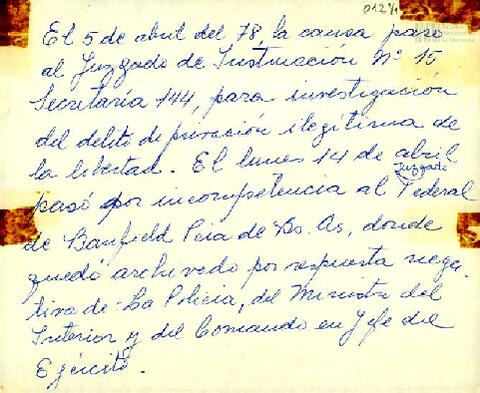 012411
El 5 de abril del 78, la causa paso
al Juzgado de Instrucción Nº 15
Secretaría 144, para investigación
del delito de privación ilegítima de
la libertad. El lunes 14 de abril
Juzgado
pasó por incompetencia al Federal
de Banfield Pcia de Bs. As, donde
quedó archivado por respuesta nega-
tiva de La Policia, del Ministro del
Interior y del Comando en Jefe del
Ejército.